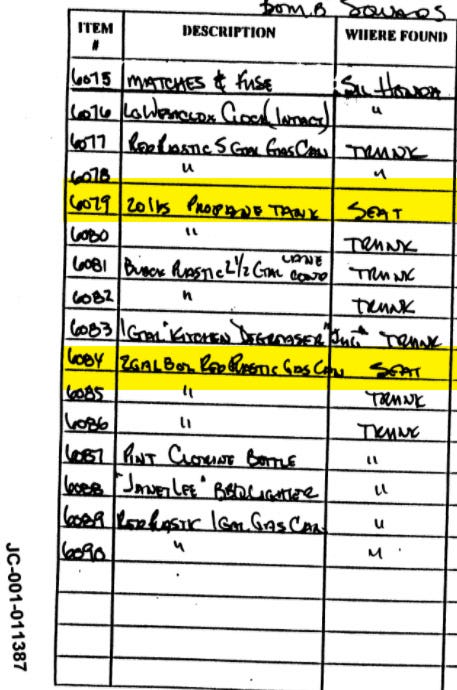 BOMB SQUADS
ITEM # DESCRIPTION WHERE FOUND
6075 MATCHES & FUSE SIL HONDA
6076 CLOCK (INTACT) "
6077 RED PLASTIC 5 GAL GAS CAN TRUNK
6078 " "
6079 20 lbs PROPANE TANK SEAT
6080 " TRUNK
6081 BLACK PLASTIC 2 1/2 GAL TRUNK
6082 " TRUNK
6083 1 GAL "KITCHEN DEGREASER" JUG TRUNK
6084 2 GAL 8 OZ RED PLASTIC GAS CAN SEAT
6085 " TRUNK
6086 " TRUNK
6087 PINT CLORINE BOTTLE "
6088 "JANET LEE" BBQ LIGHTER "
6089 RED PLASTIC 1 GAL GAS CAN "
6090 " "
JC-001-011387